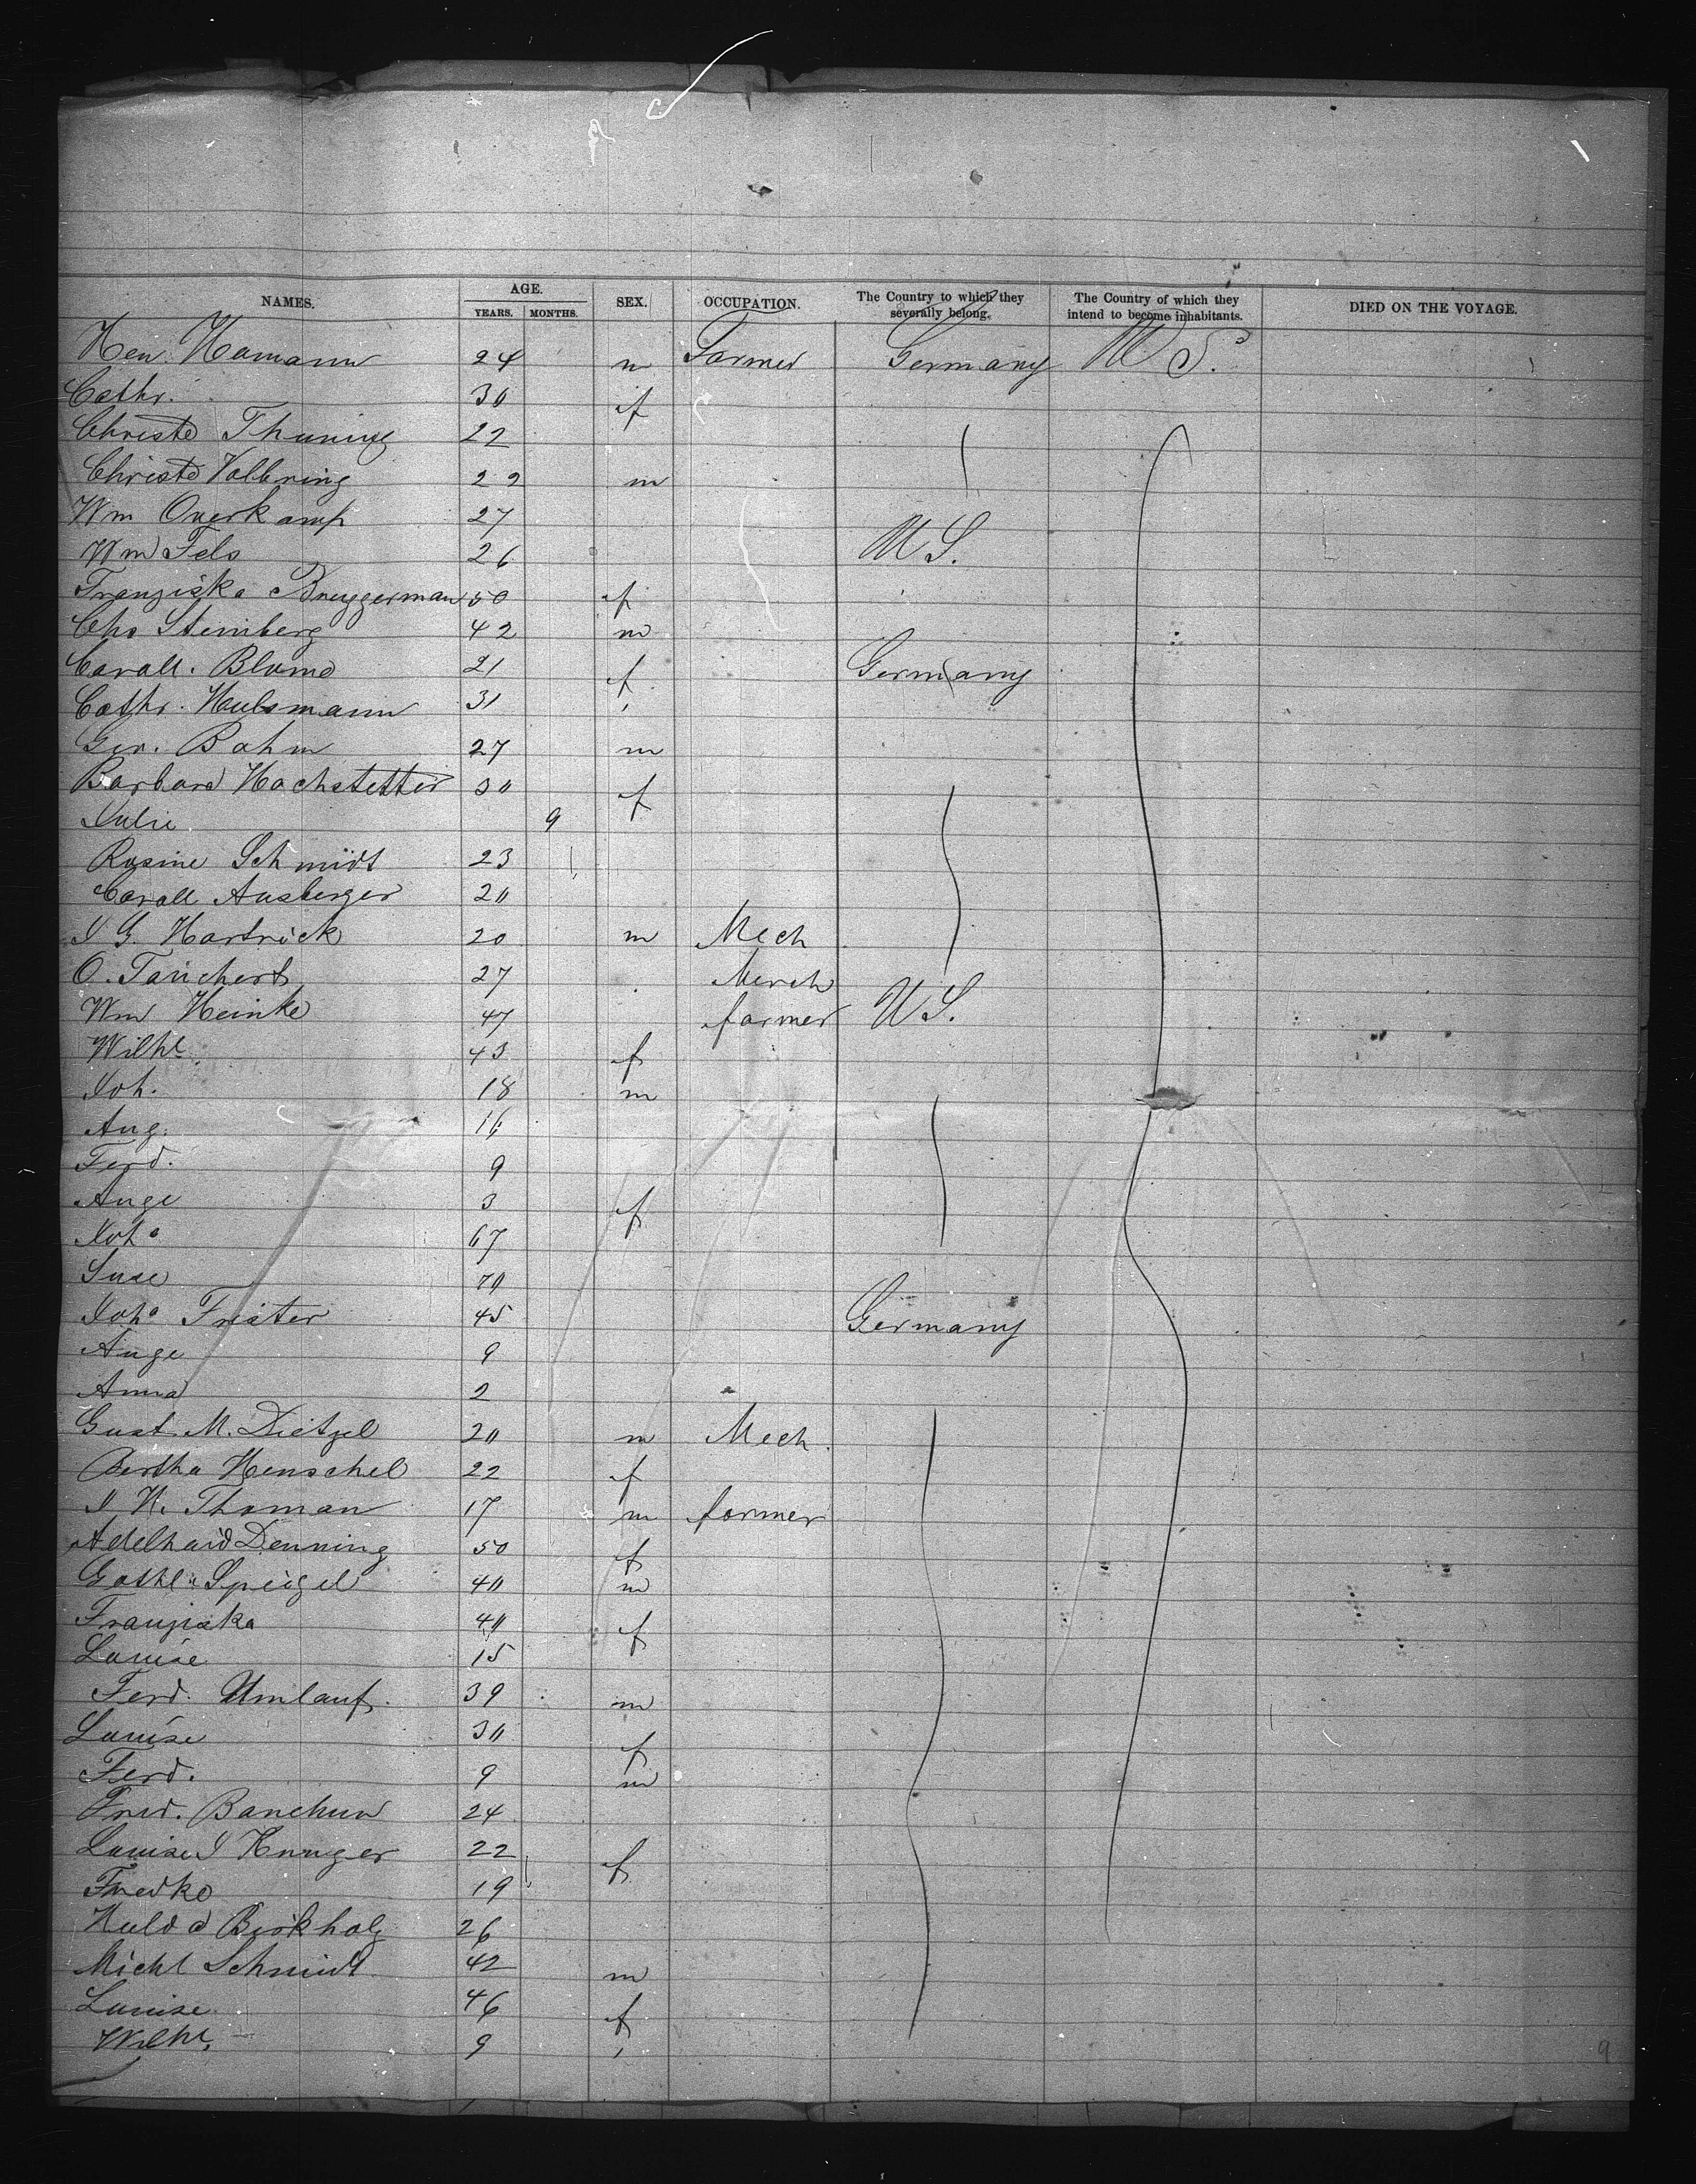 NAMES. AGE. YEARS. MONTHS. SEX. OCCUPATION. The Country to which they severally belong. The Country of which they intend to become inhabitants. DIED ON THE VOYAGE.
Hen Hamann 24 m Farmer Germany U S.
Cathr. 30 f
Christe Thuning 22
Christe Vollbring 22 m
Wm Overkamp 27
Wm Fels 26 U S.
Franziska Bruggerman 50 f
Chs Steinberg 42 m
Caroll. Blome 21 f Germany
Cathr. Hulsmann 31 '
Ger. Bahm 27 m
Barbara Hochstetter 30 f
Julie 9
Rosine Schmidt 23
Caroll Ansberger 20
J G. Hartrick 20 m Mech
O. Tanchert 27 Merch
Wm Heinke 47 farmer U S.
Wilhe 43 f
Joh. 18 m
Aug. 16
Ferd. 9
Auge 3 f
Joha 67
Suse 70
Joha Frister 45 Germany
Auge 9
Anna 2
Gust. M. Dietzel 20 m Mech.
Bertha Henschel 22 f
J H. Thoman 17 m farmer
Adelhaid Denning 50 f
Gothl. Speigel 40 m
Franziska 40 f
Louise 15
Ferd. Umlauf. 39 m
Louise 30 f
Ferd. 9 m
Fred. Banchun 24
Louise J Krruger 22 f
Fredke 19
Huld a Birkholz 26
Michl Schmidt 42 m
Louise 46 f
Wilhe 9 '
9